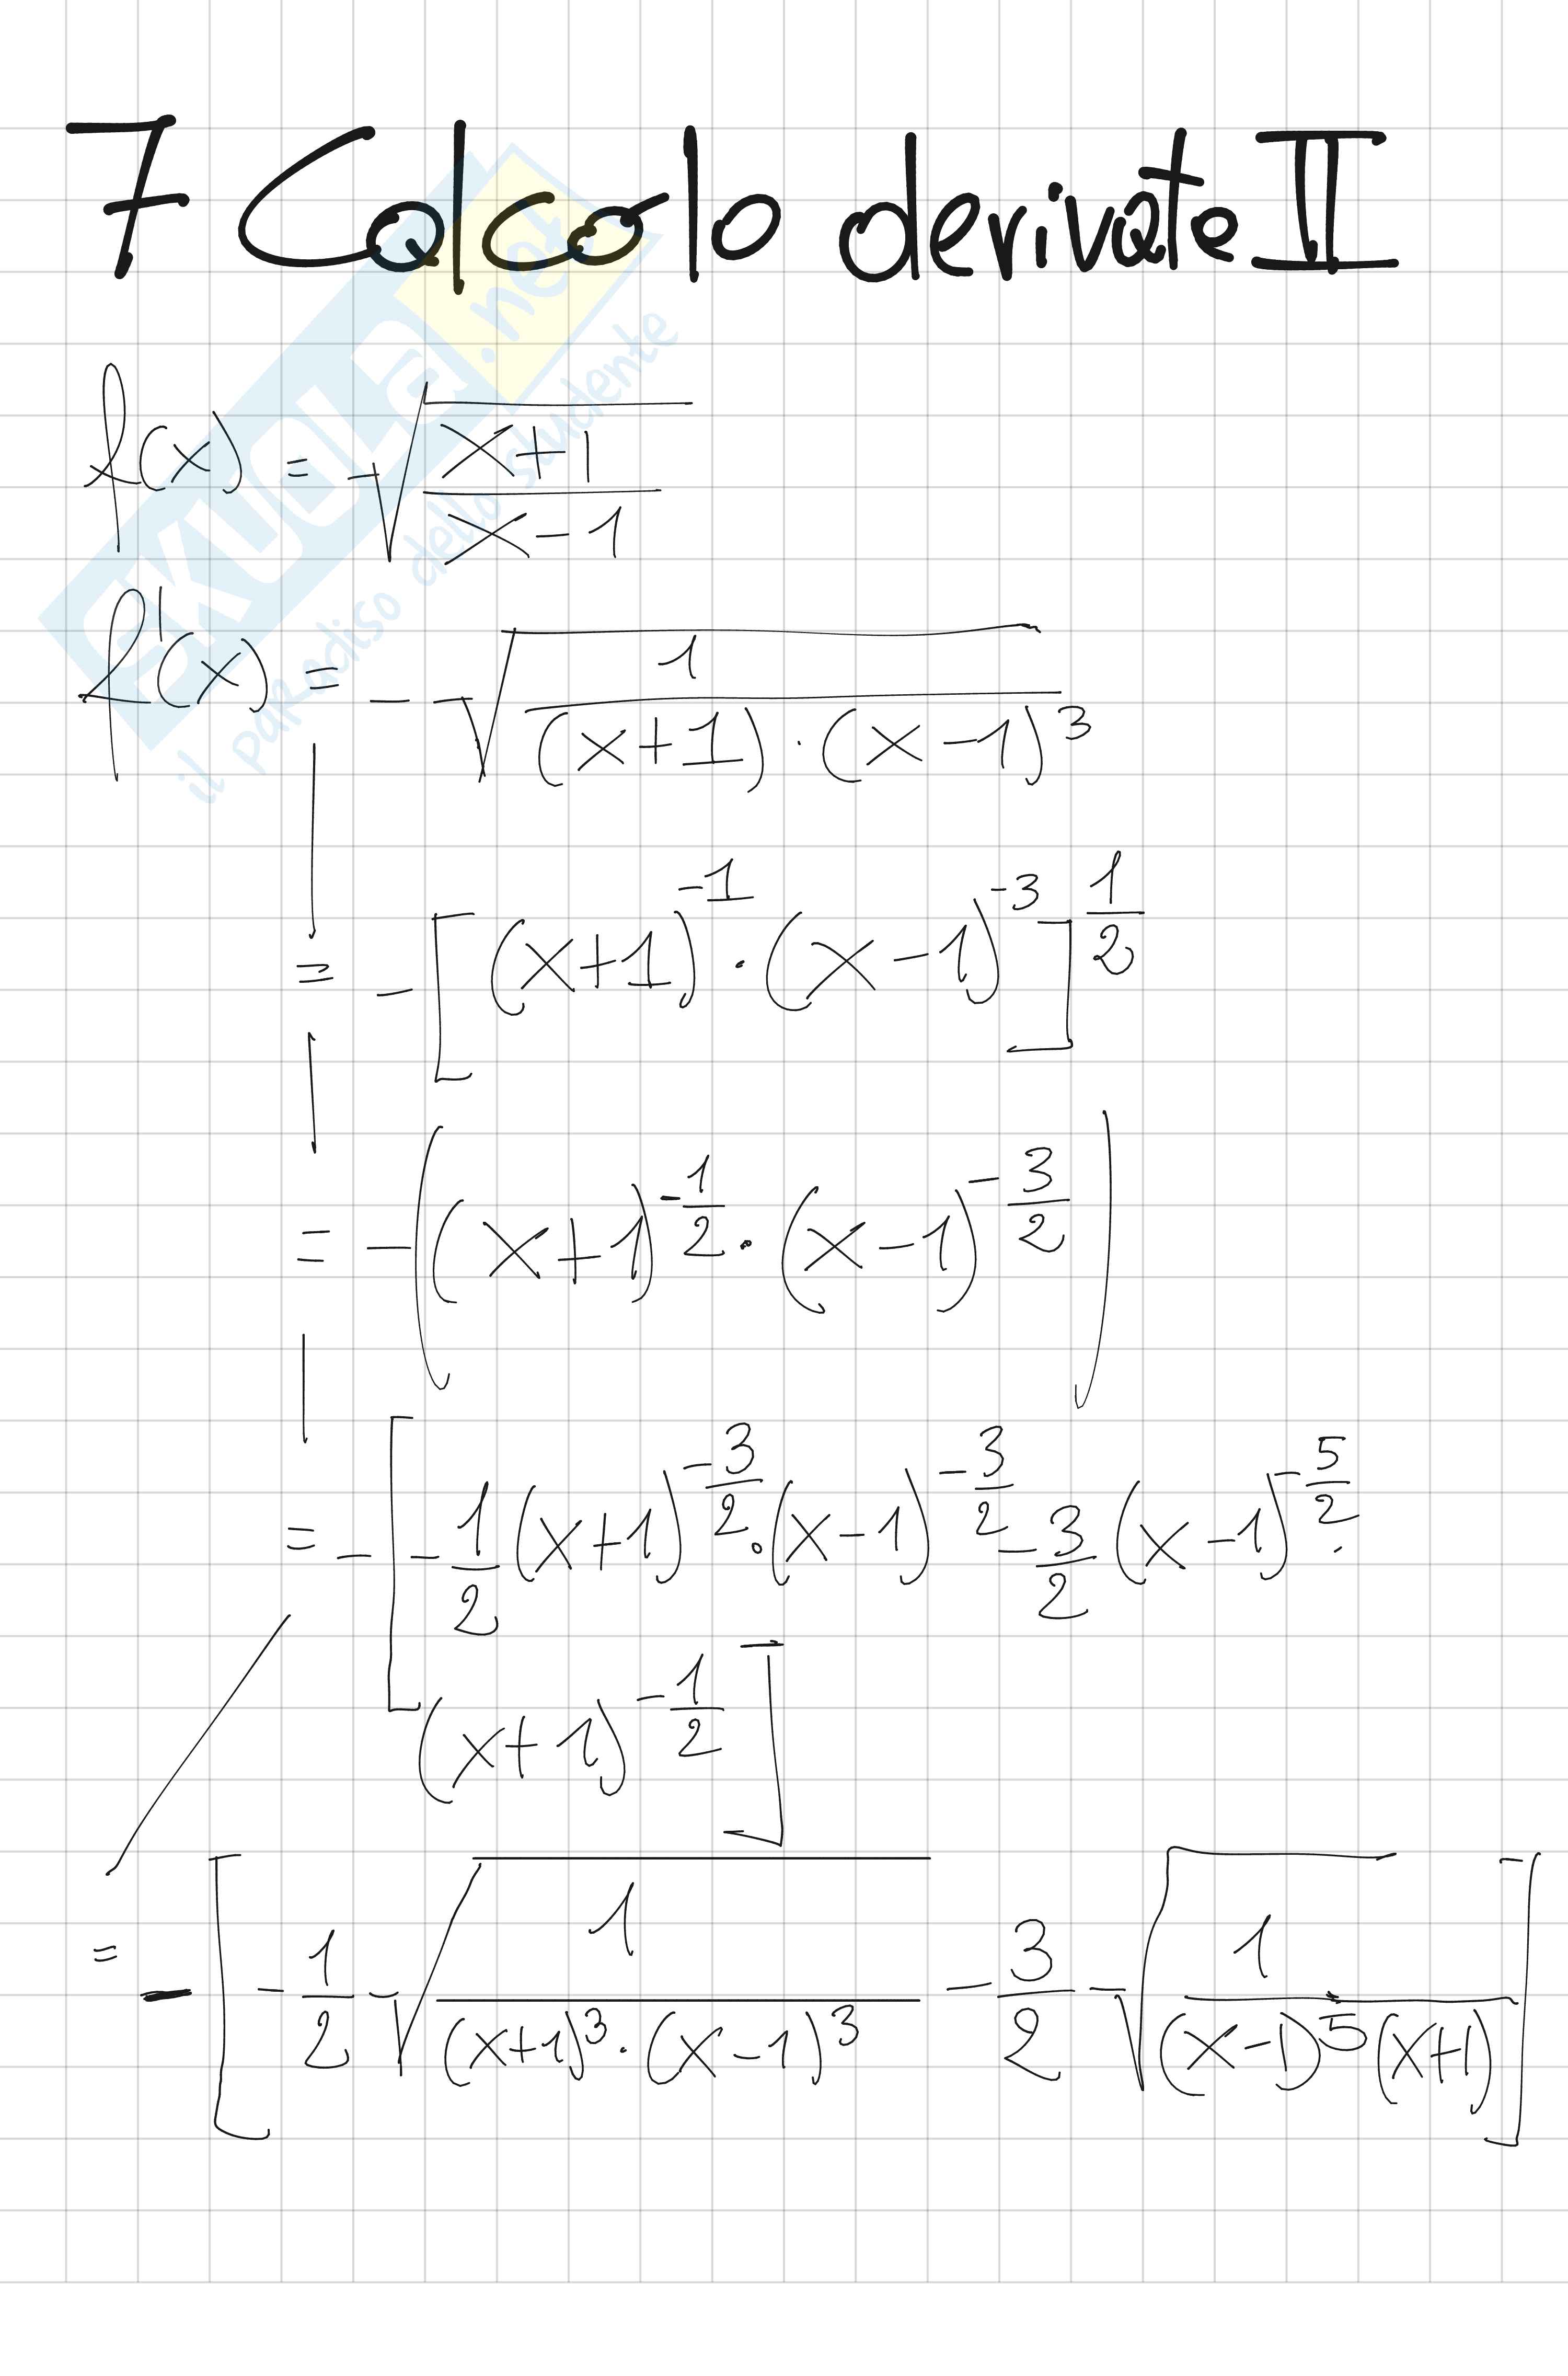 7 Calcolo derivate II
SKUOLA.net
il paradiso dello studente
f(x) = √((x+1)/(x-1))
f'(x) = - √(1/((x+1)·(x-1)³))
= - [(x+1)⁻¹·(x-1)⁻³]^(1/2)
= -((x+1)^(-1/2)·(x-1)^(-3/2))
= - [-1/2 (x+1)^(-3/2)·(x-1)^(-3/2) - 3/2 (x-1)^(-5/2)·
(x+1)^(-1/2)]
= - [-1/2 √(1/((x+1)³·(x-1)³)) - 3/2 √(1/((x-1)⁵(x+1)))]